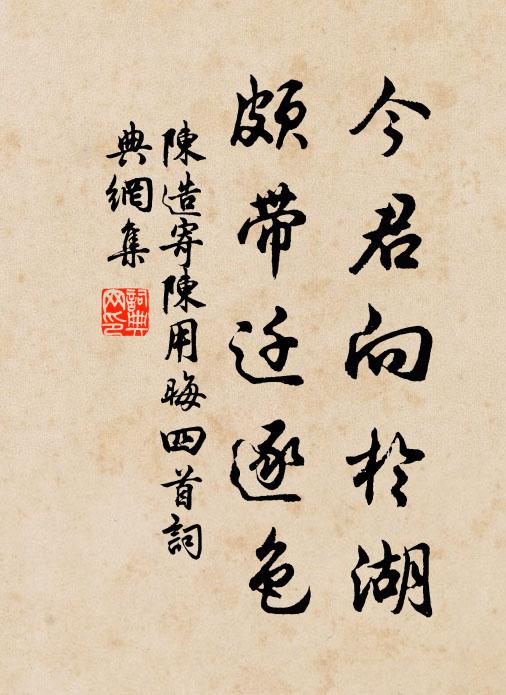 今君向於湖
頗帶迁逐色
陳造寄陳用晦四首詞
典網集
詞典网印